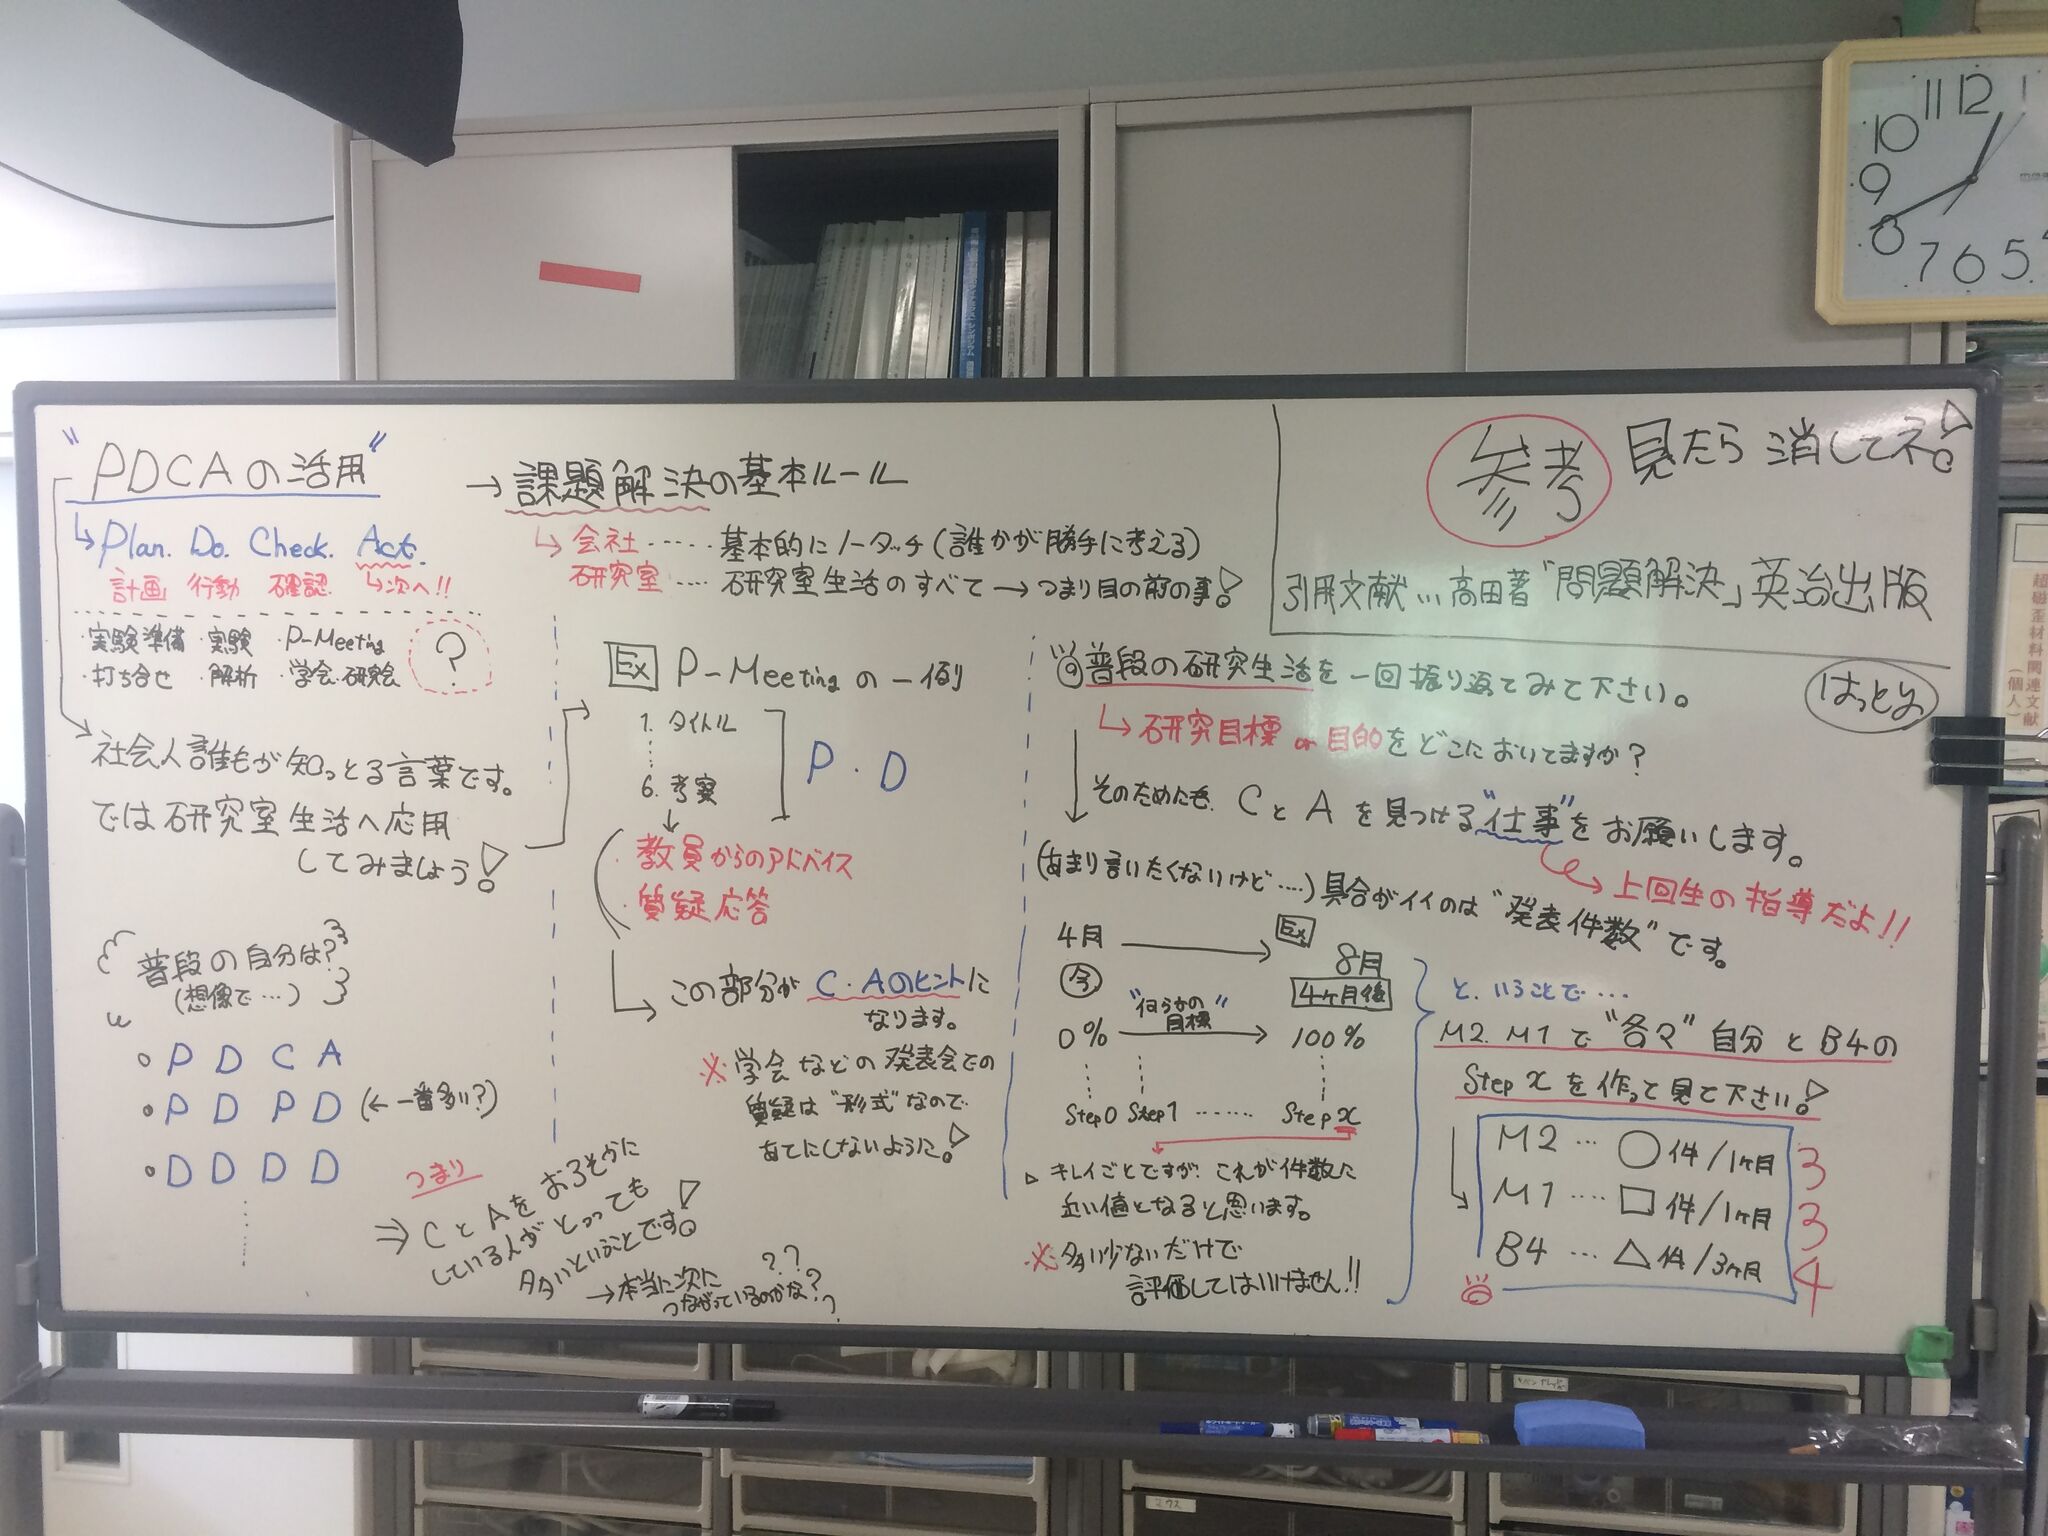 "PDCAの活用"
→課題解決の基本ルール
Plan. Do. Check. Act.
計画 行動 確認 次へ!!
・実験準備 ・実験 ・P-Meeting
・打ち合せ ・解析 ・学会・研究会
?
社会人誰もが知っとる言葉です。
では研究室生活へ応用
してみましょう!
普段の自分は?
(想像で…)
○ P D C A
・P D P D (←一番多い?)
○ D D D D
つまり
⇒ CとAをおろそかに
している人がとっっても
多いということです!
→本当に次に
つながっているのかな?
??
会社……基本的にノータッチ(誰かが勝手に考える)
研究室……研究室生活のすべて→つまり目の前の事!
Ex P-Meetingの一例
1. タイトル
6. 考察
P・D
・教員からのアドバイス
・質疑応答
この部分がC・Aのヒントに
なります。
※学会などの発表会での
質疑は"形式"なので
あてにしないように!
参考
見たら消してネ!
引用文献… 高田著「問題解決」英治出版
はっとり
◎普段の研究生活を一回振り返てみて下さい。
研究目標 or 目的をどこにおいてますか?
そのためにも、CとAを見つける"仕事"をお願いします。
上回生の指導だよ!!
(あまり言いたくないけど….)具合がイイのは"発表件数"です。
4月
Ex
8月
今
4ヶ月後
"何らかの"
目標
0%
100%
Step0 Step1 …… Step x
▷キレイごとですが、これが件数に
近い値となると思います。
※多い少ないだけで
評価してはいけません!!
と、いうことで…
M2. M1で"各々"自分とB4の
Step xを作って見て下さい!
M2 … ○件/1ヶ月 3
M1 …. □件/1ヶ月 3
B4 … △件/3ヶ月 4
11 12 1
10
9
8
7 6 5
超磁歪材料関連文献
(個人)
マウス